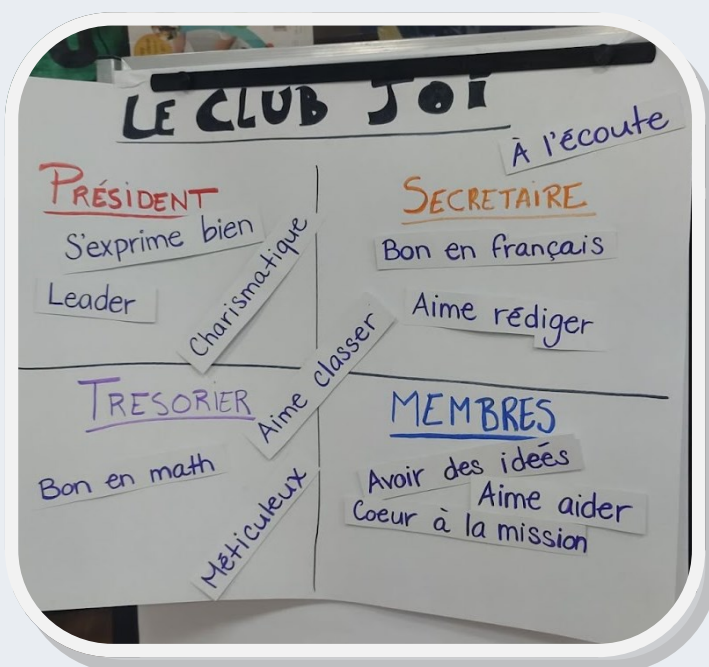 LE CLUB JOI
À l'écoute
PRÉSIDENT
S'exprime bien
Leader
Charismatique
SECRETAIRE
Bon en français
Aime rédiger
Aime classer
TRESORIER
Bon en math
Méticuleux
MEMBRES
Avoir des ideés
Aime aider
Coeur à la mission